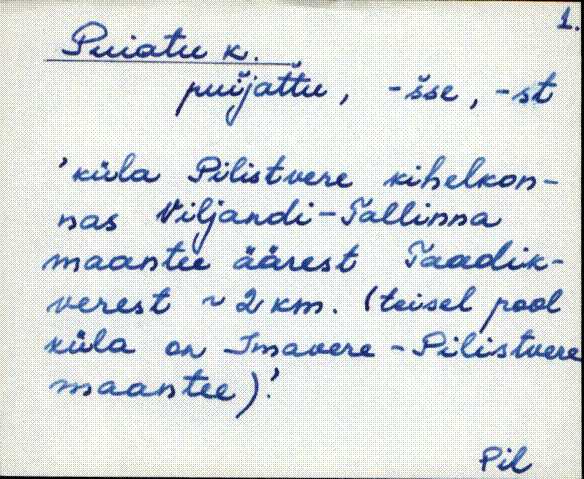 1.
Puiatu k.
puijattu, -šse, -st
'küla Pilistvere kihelkon-
nas Viljandi-Tallinna
maantee äärest Taadik-
verest ~ 2 km. (teisel pool
küla on Imavere - Pilistvere
maantee).'
Pil